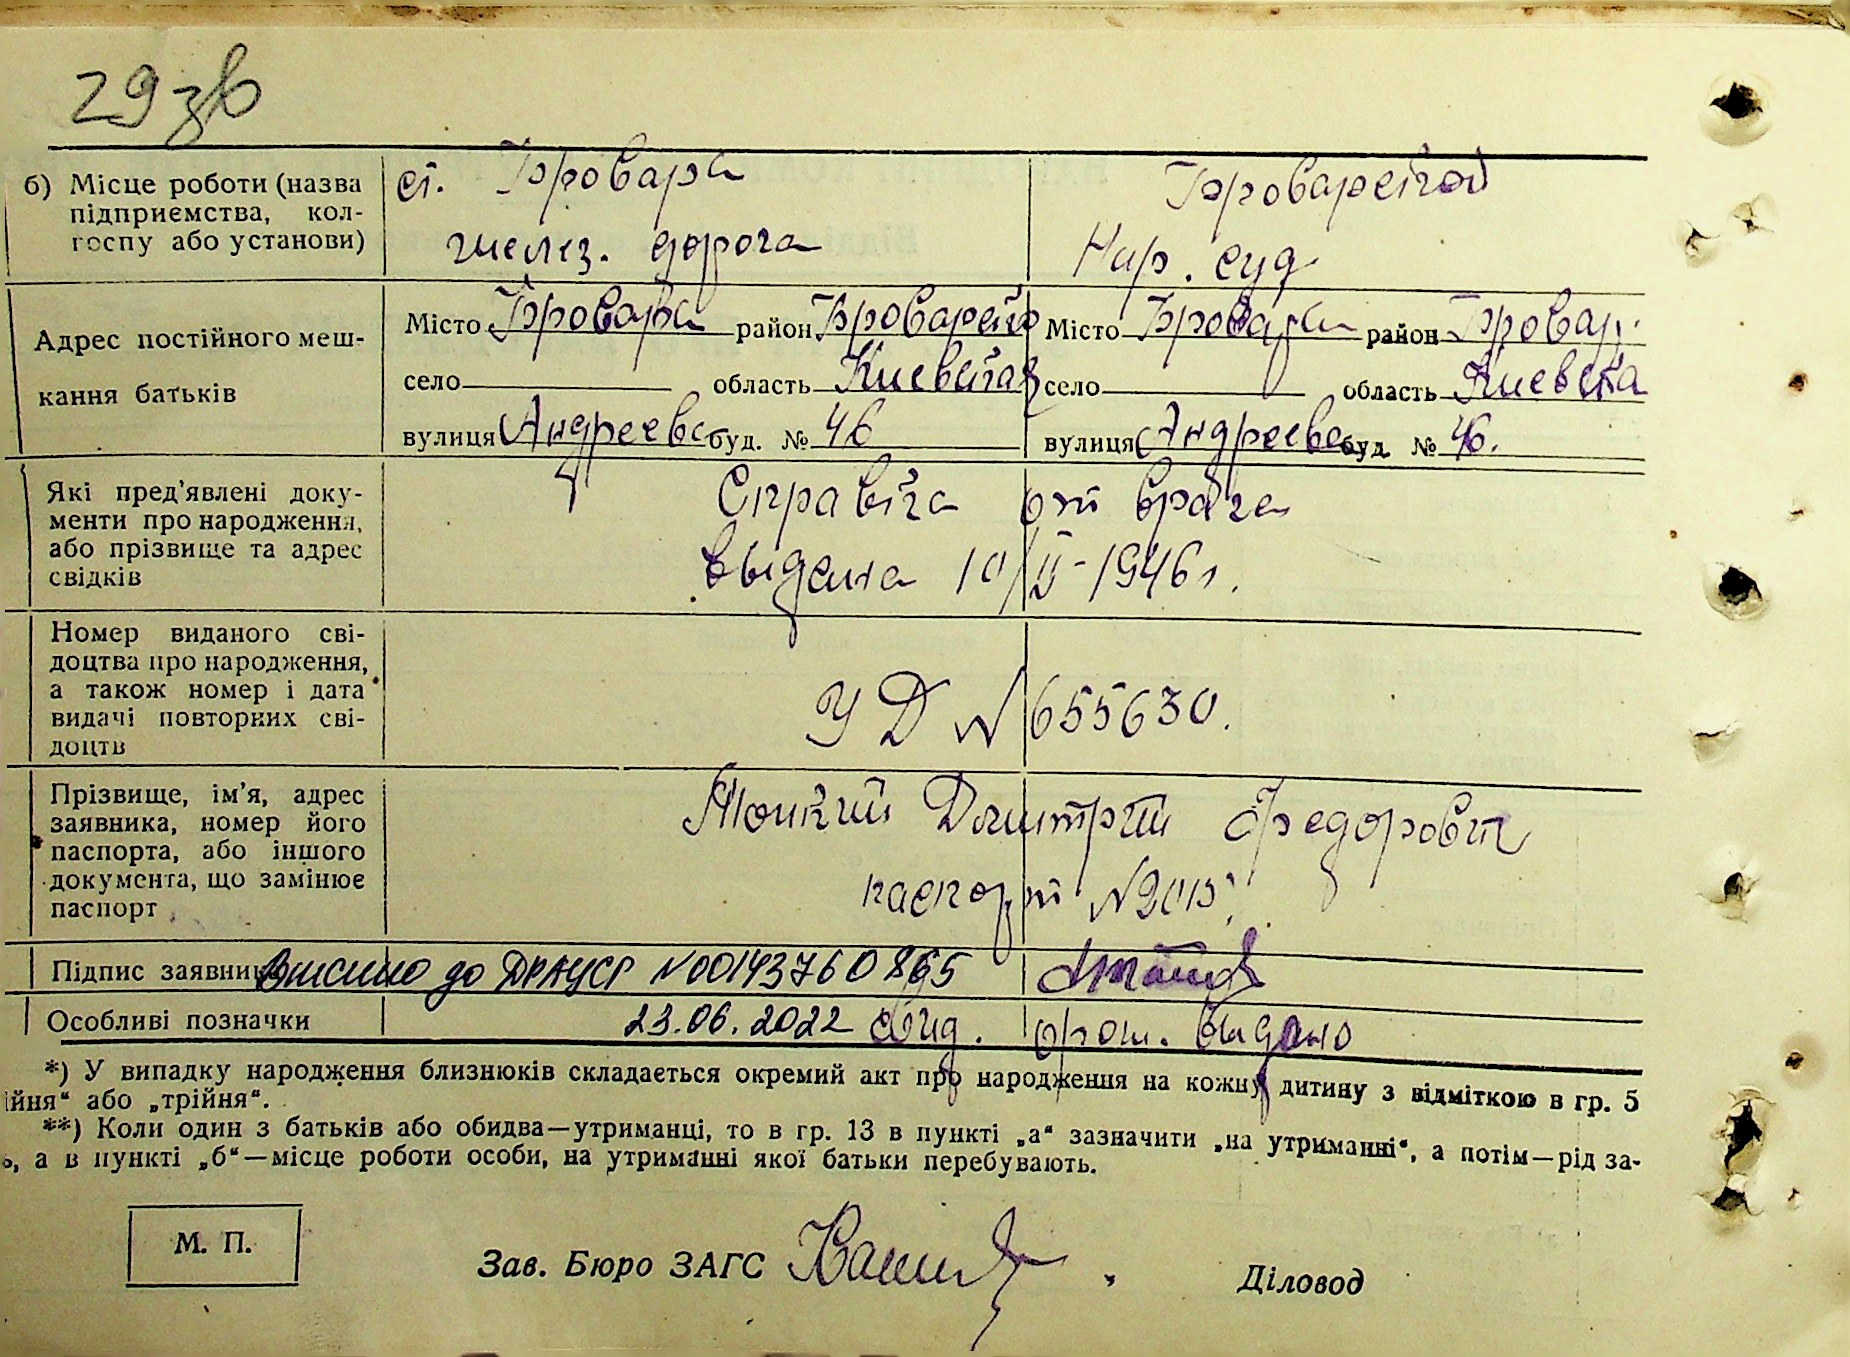 29 зв
б) Місце роботи (назва
підприємства, кол-
госпу або установи)
ст. Бровары
желез. дорога
Броварской
Нар. суд
Адрес постійного меш-
кання батьків
Місто Бровары район Броварской
село область Киевская
вулиця Андреевс буд. № 46
Місто Бровары район Бровар.
село область Киевска
вулиця Андреевс буд. № 46.
Які пред'явлені доку-
менти про народження,
або прізвище та адрес
свідків
Справка от врача
выдана 10/II-1946 г.
Номер виданого сві-
доцтва про народження,
а також номер і дата
видачі повторних сві-
доцтв
УД № 655630.
Прізвище, ім'я, адрес
заявника, номер його
паспорта, або іншого
документа, що замінює
паспорт
Дмитрий Федорович
паспорт №
Підпис заявника
Внесено до ДРАЦСГ №00143760865
Особливі позначки
23.06.2022 свид. брош. выдано
*) У випадку народження близнюків складається окремий акт про народження на кожну дитину з відміткою в гр. 5
ійня“ або „трійня“.
**) Коли один з батьків або обидва—утриманці, то в гр. 13 в пункті „а“ зазначити „на утриманні“, а потім—рід за-
ь, а в пункті „б“—місце роботи особи, на утриманні якої батьки перебувають.
М. П.
Зав. Бюро ЗАГС
Діловод